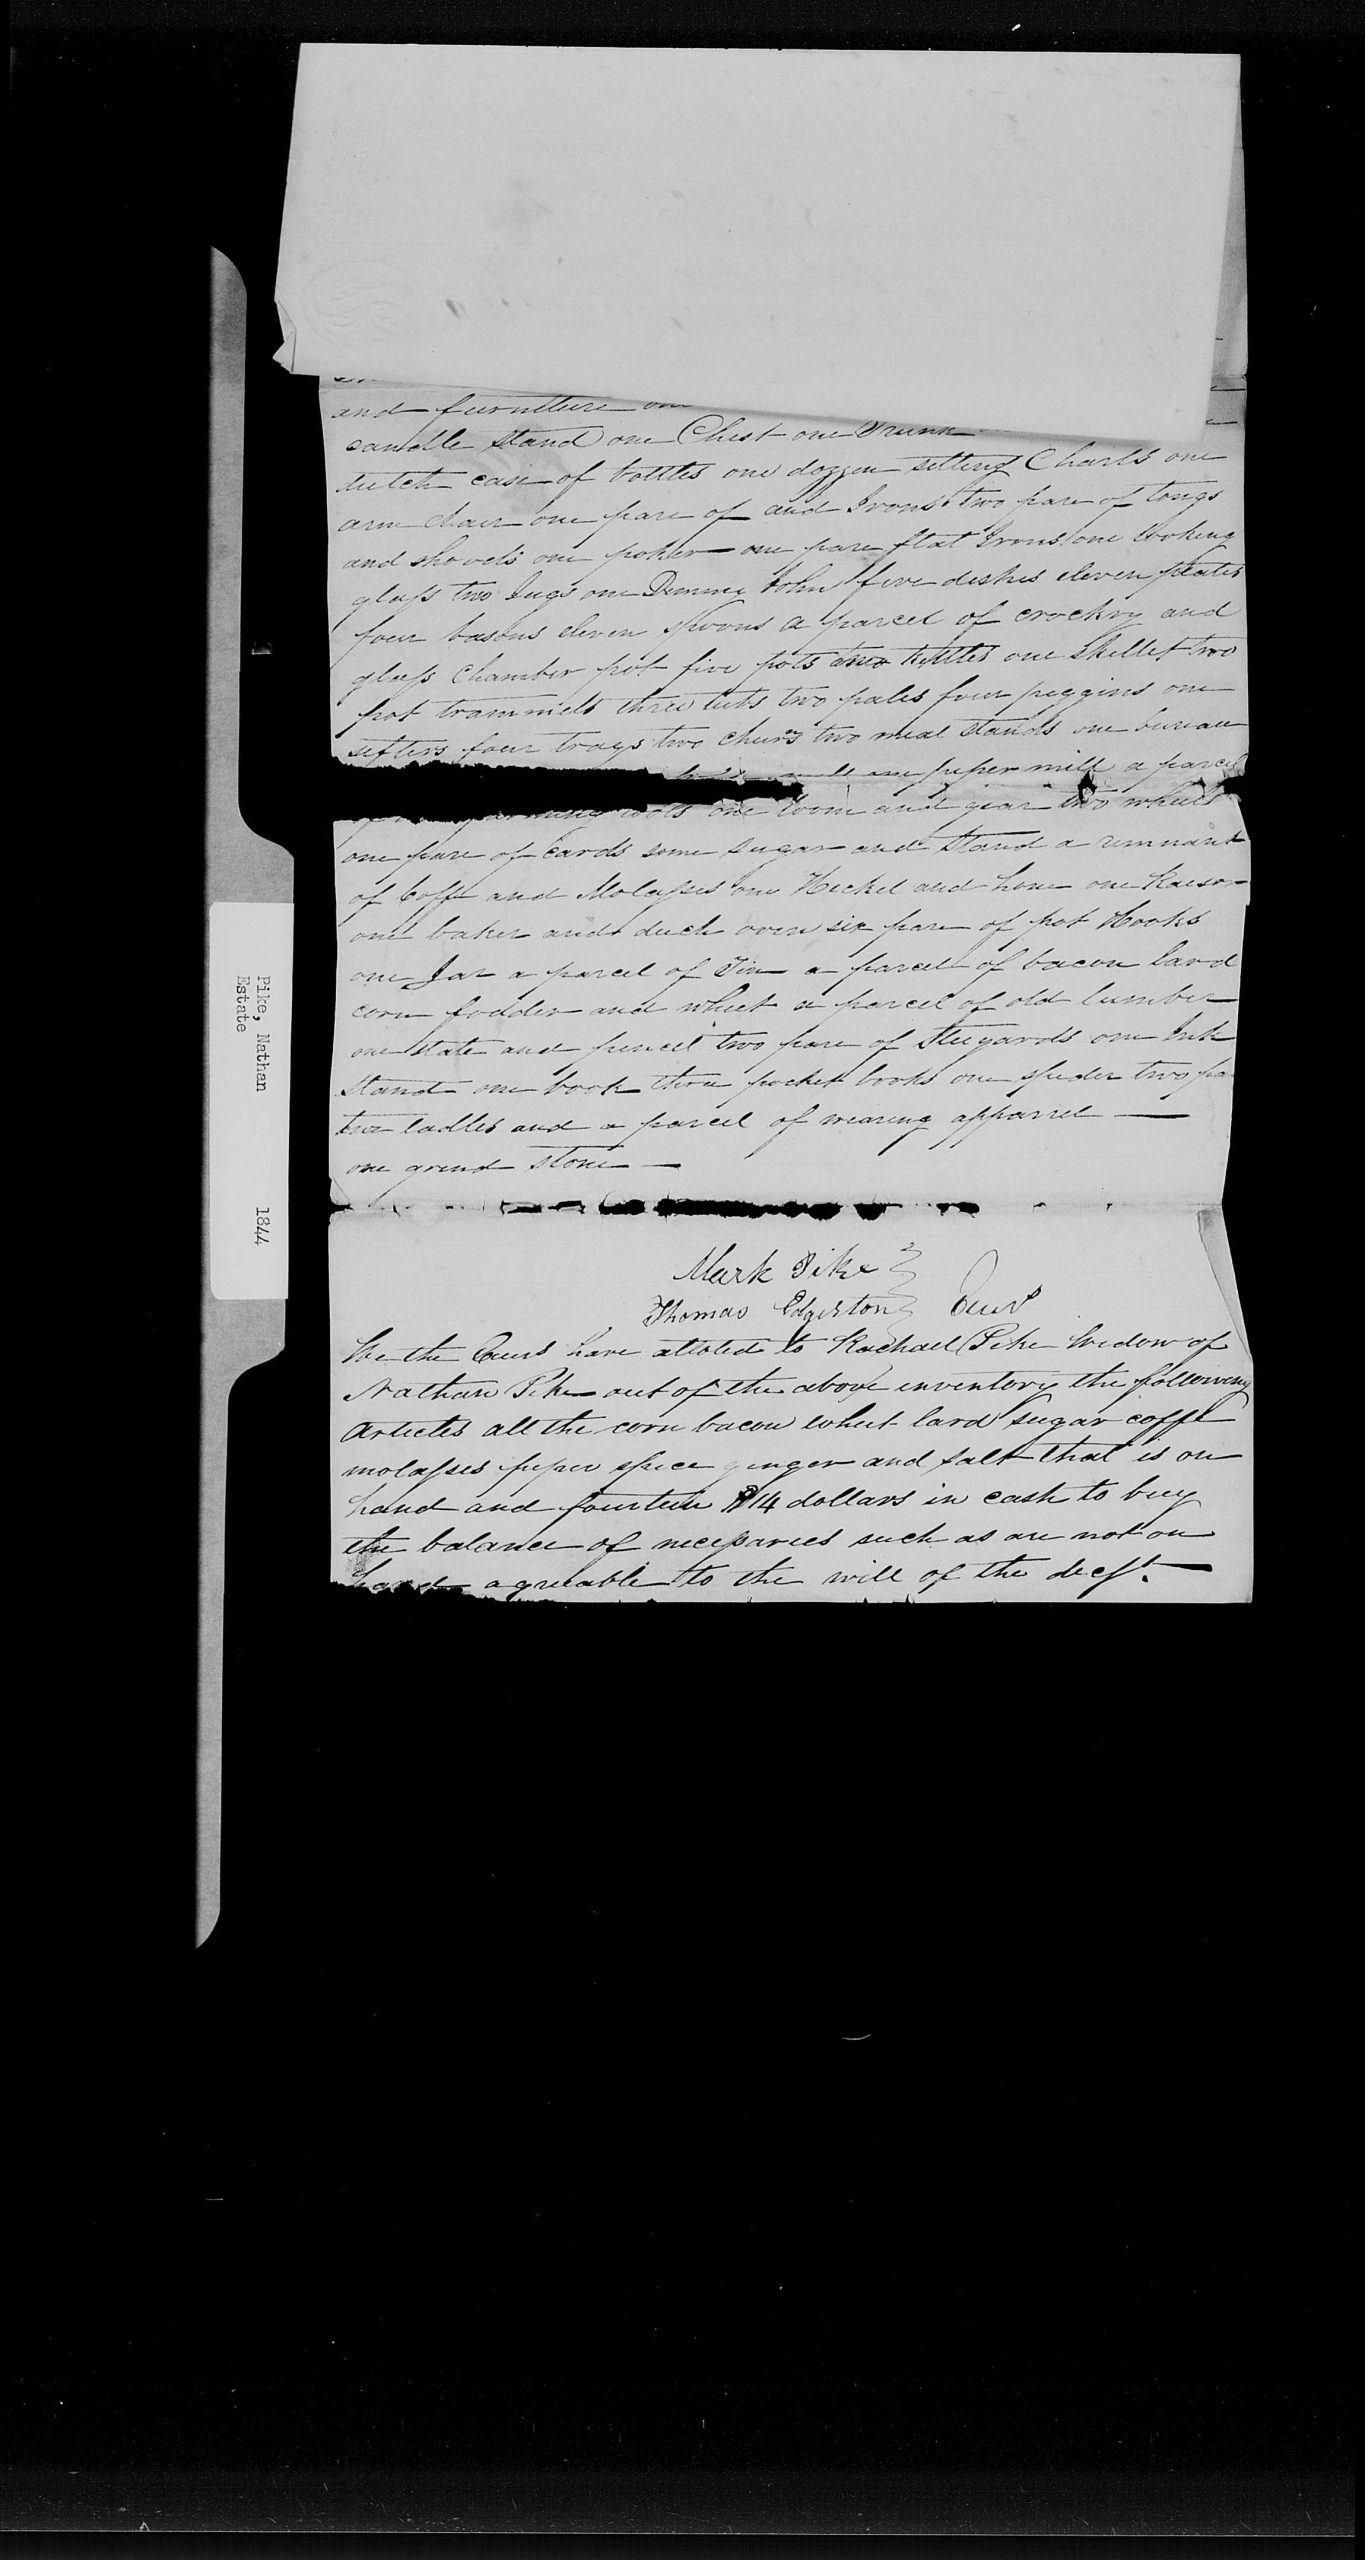 and furniture
candle stand one Chest one Trunk
dutch case of bottles one dozzen setting Chars one
arm chair one pare of and Irons two pare of tongs
and shovels one poker one pare flat Irons one looking
glass two Jugs one Dimmi John five dishes eleven plates
four basons eleven spoons a parcel of crockry and
glass Chamber pot five pots two kittles one skillet two
pot trammiels three tubs two pales four peggins one
sifters four trays two churns two meal stands one bureau
one peper mill a parcel
tools one loom and giar two wheels
one pare of Cards some sugar and stand a remnant
of Coffe and Molasses one Heckel and hone one Raisor
one baker and duch oven six pare of pot Hooks
one Jar a parcel of Tin a parcel of bacon lard
corn fodder and wheet a parcel of old lumber
one slate and pencil two pare of Stegards one Ink
stand one book three pocket books one spider two
two ladles and a parcel of wearing apparrel
one grind stone
Mark Pike
Thomas Edgerton
We the have alloted to Rachael Pike Widow of
Nathan Pike out of the above inventory the following
Articles all the corn bacon wheet lard sugar coffe
molasses peper spice ginger and salt that is on
hand and fourteen $14 dollars in cash to buy
the balance of necessaries such as are not on
hand agreeable to the will of the
Pike, Nathan 1844
Estate